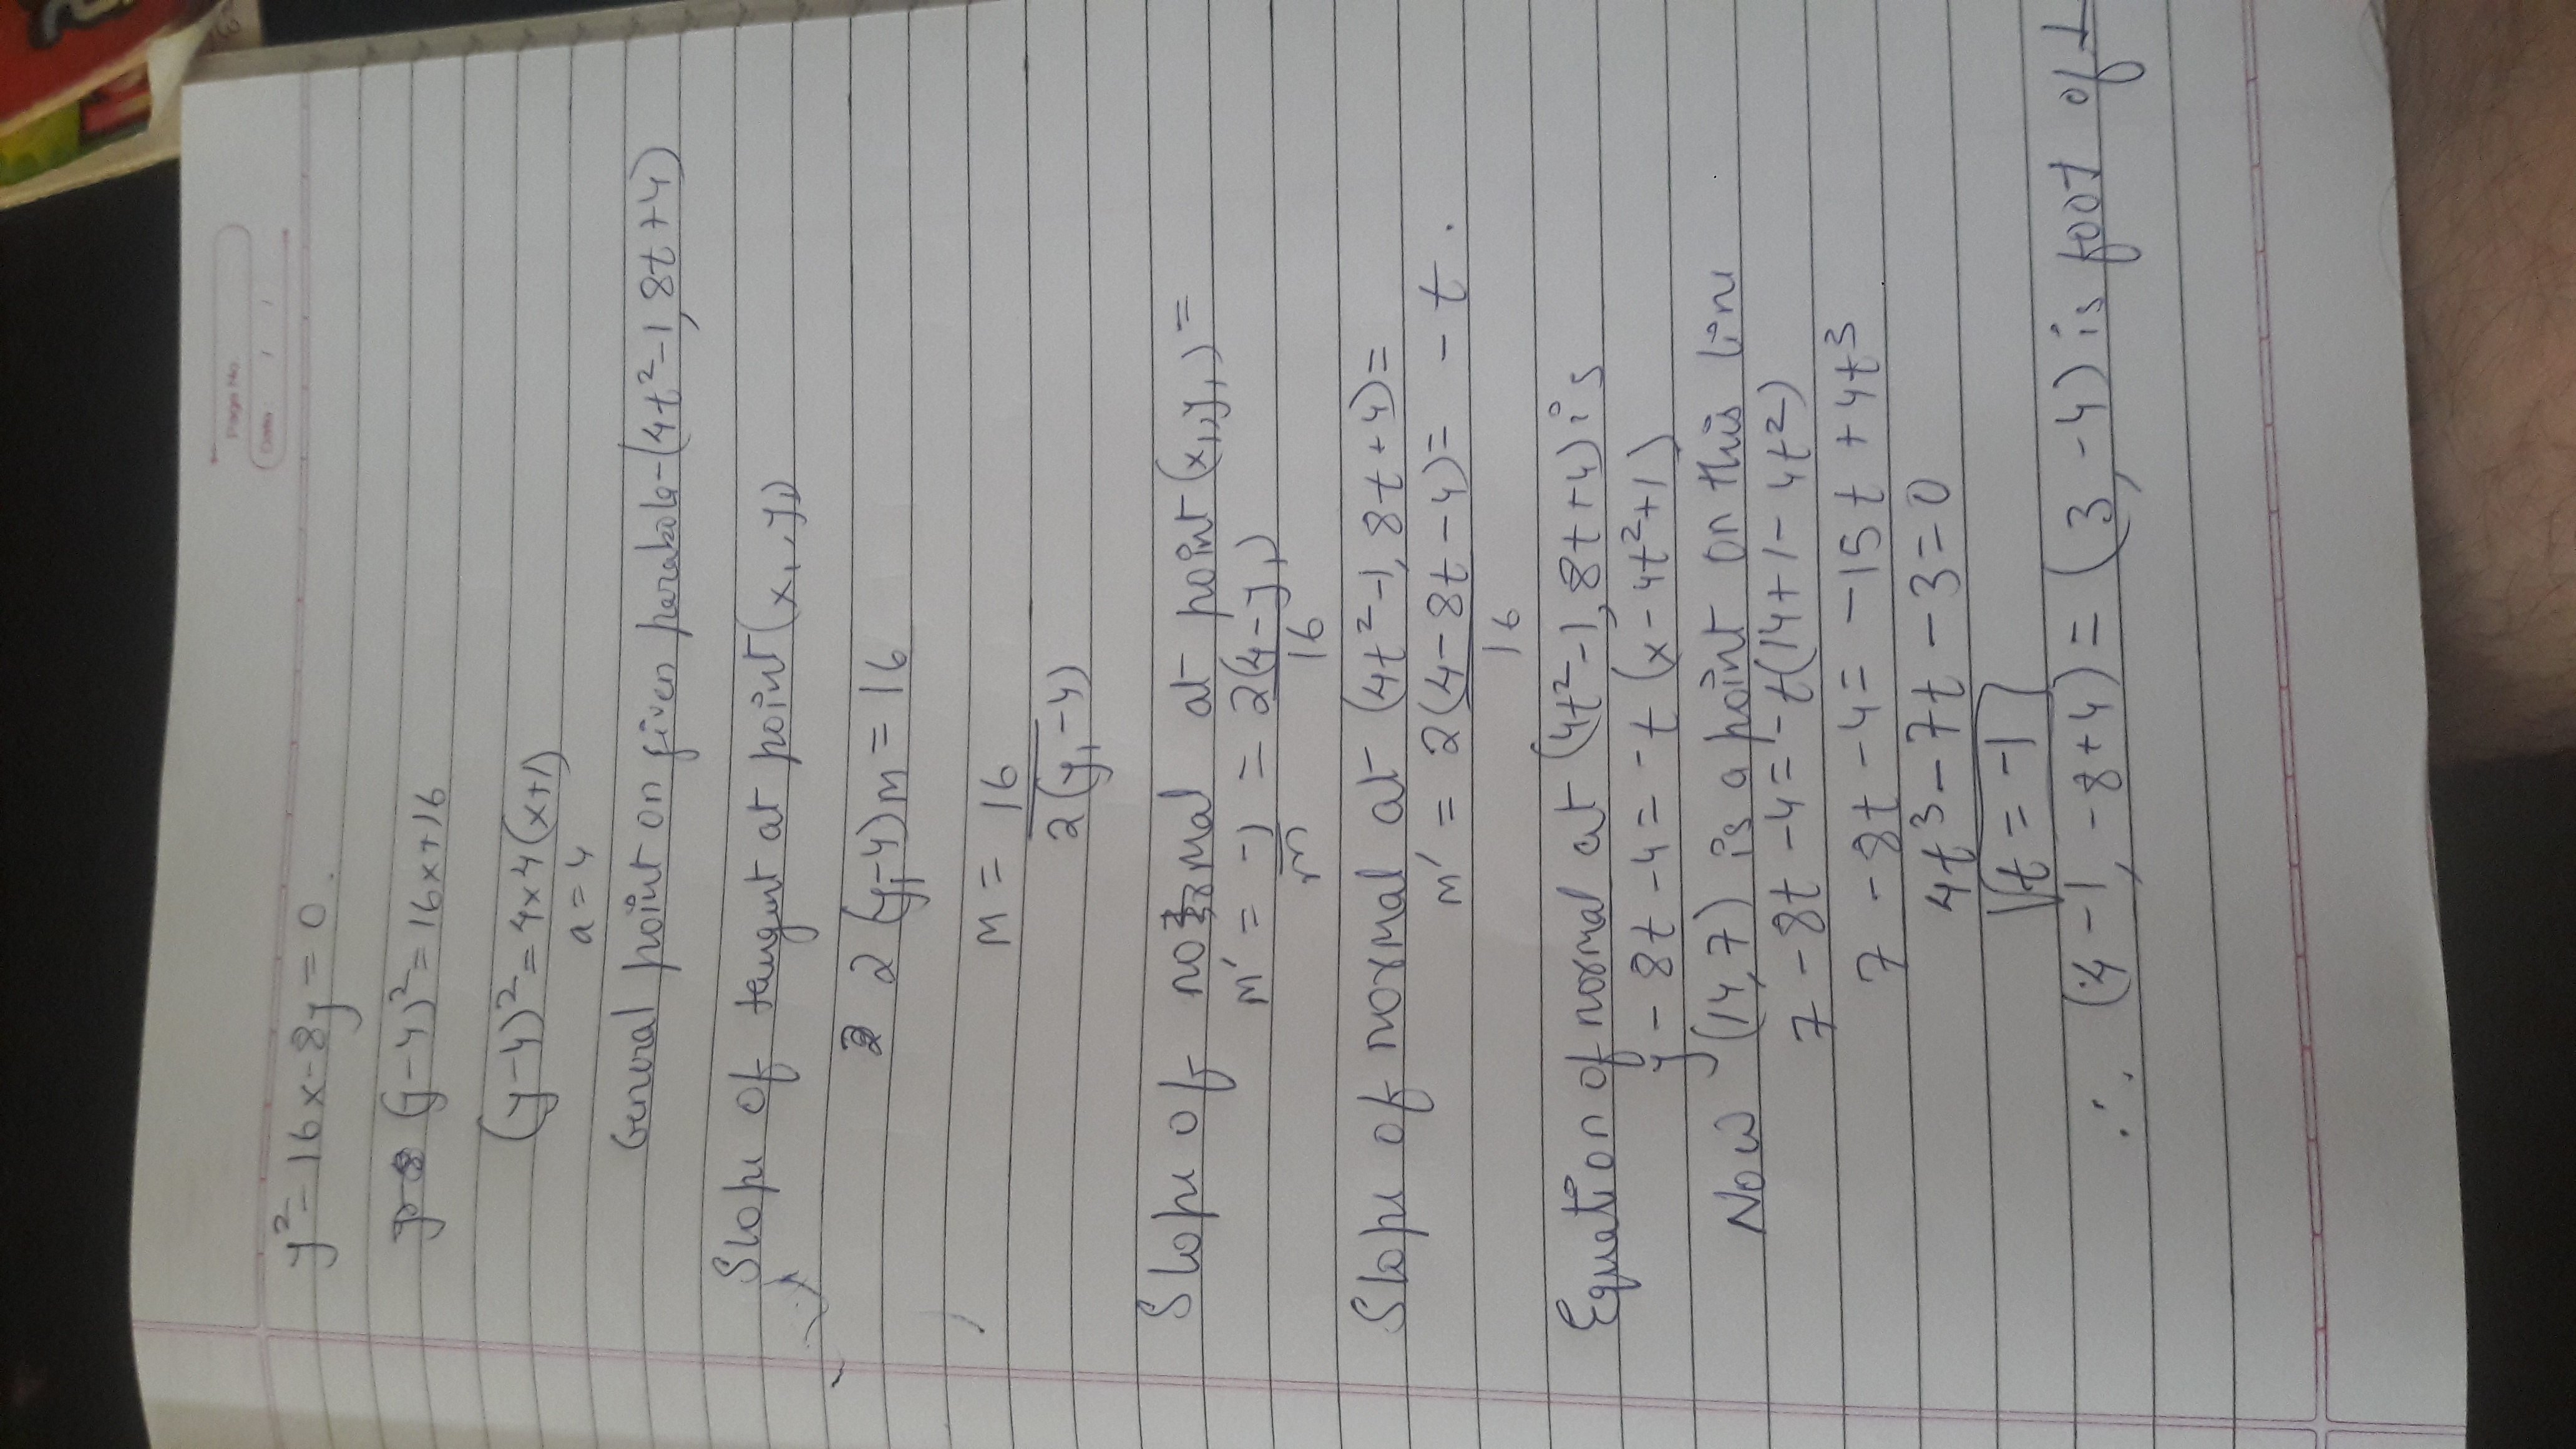 Page No.
Date: / /
y² - 16x - 8y = 0.
(y-4)² = 16x+16
(y-4)² = 4×4(x+1)
a = 4
General point on given parabola - (4t²-1, 8t+4)
Slope of tangent at point (x₁, y₁)
2 (y₁-4)m = 16
m = 16/2(y₁-4)
Slope of normal at point (x₁, y₁) =
m' = -1/m = 2(4-y₁)/16
Slope of normal at (4t²-1, 8t+4) =
m' = 2(4-8t-4)/16 = -t.
Equation of normal at (4t²-1, 8t+4) is
y - 8t - 4 = -t (x - 4t²+1)
Now (14,7) is a point on this line
7 - 8t - 4 = -t(14+1 - 4t²)
7 - 8t - 4 = -15t + 4t³
4t³ - 7t - 3 = 0
t = -1
∴ (4-1, -8+4) = (3, -4) is foot of ⊥